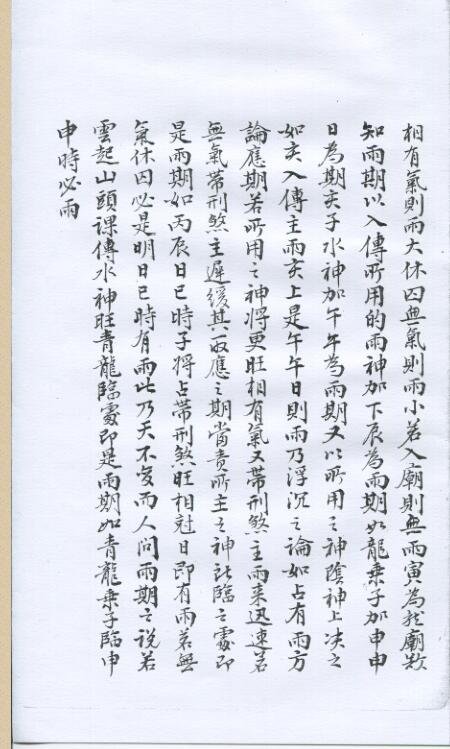 相有氣則雨大休囚無氣則雨小若入廟則無雨寅為龙廟欺
知雨期以入傳所用的雨神加下辰為雨期如龍乗子加申申
日為期亥子水神加午午為雨期又以所用之神陰神上决之
如亥入傳主雨亥上是午午日則雨乃浮沉之論如占有雨方
論應期若所用之神將更旺相有氣又带刑煞主雨来迅速若
無氣带刑煞主遲緩其一取應之期當責所主之神所臨之處即
是雨期如丙辰日巳時子將占带刑煞旺相冠日即有雨若無
氣休囚必是明日巳時有雨此乃天不变而人問雨期之説若
雲起山頭課傳水神旺青龍臨處即是雨期如青龍乗子臨申
申時必雨